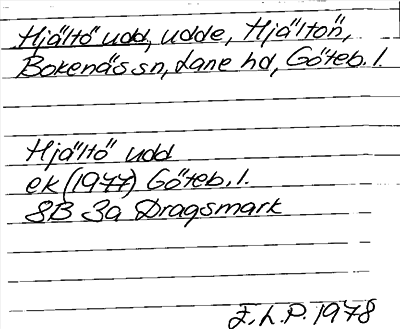 Hjältö udd, udde, Hjältön,
Bokenäs sn, Lane hd, Göteb. l.
Hjältö udd
ek (1977) Göteb. l.
8B 3a Dragsmark
E.L.P. 1978